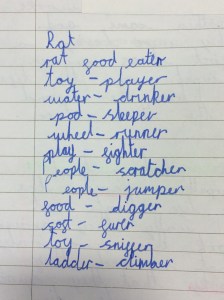 Rat
rat food eater
toy - player
water - drinker
pod - sleeper
wheel - runner
play - fighter
people - scratcher
eople - jumper
food - digger
sost - furer
toy - sniffer
ladder - climber